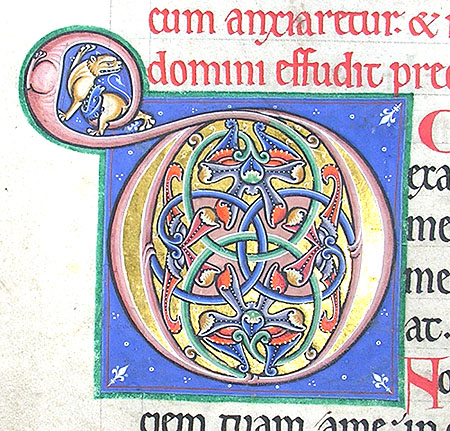 cum anxiaretur: &
domini effudit prec
D
exa
me
me
at.
No
ciem tuam ame: in